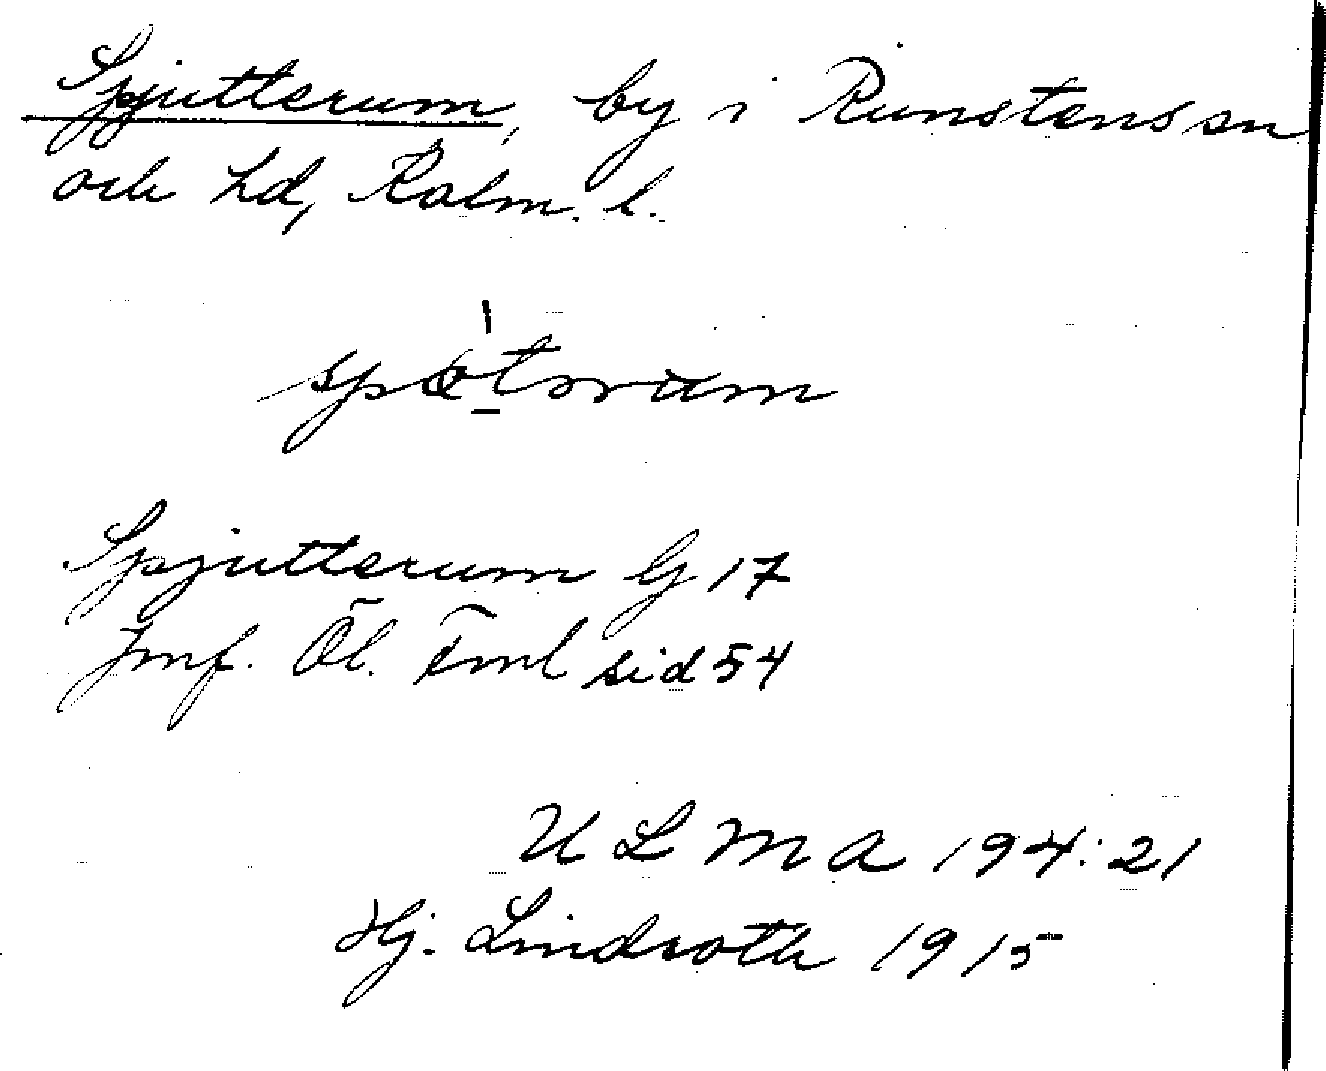 Spjutterum, by i Runstens sn
och hd, Kalm. l.
Spjutterum G 17
Jmf. Öl. Fml sid 54
ULMA 194:21
Hj. Lindroth 1915